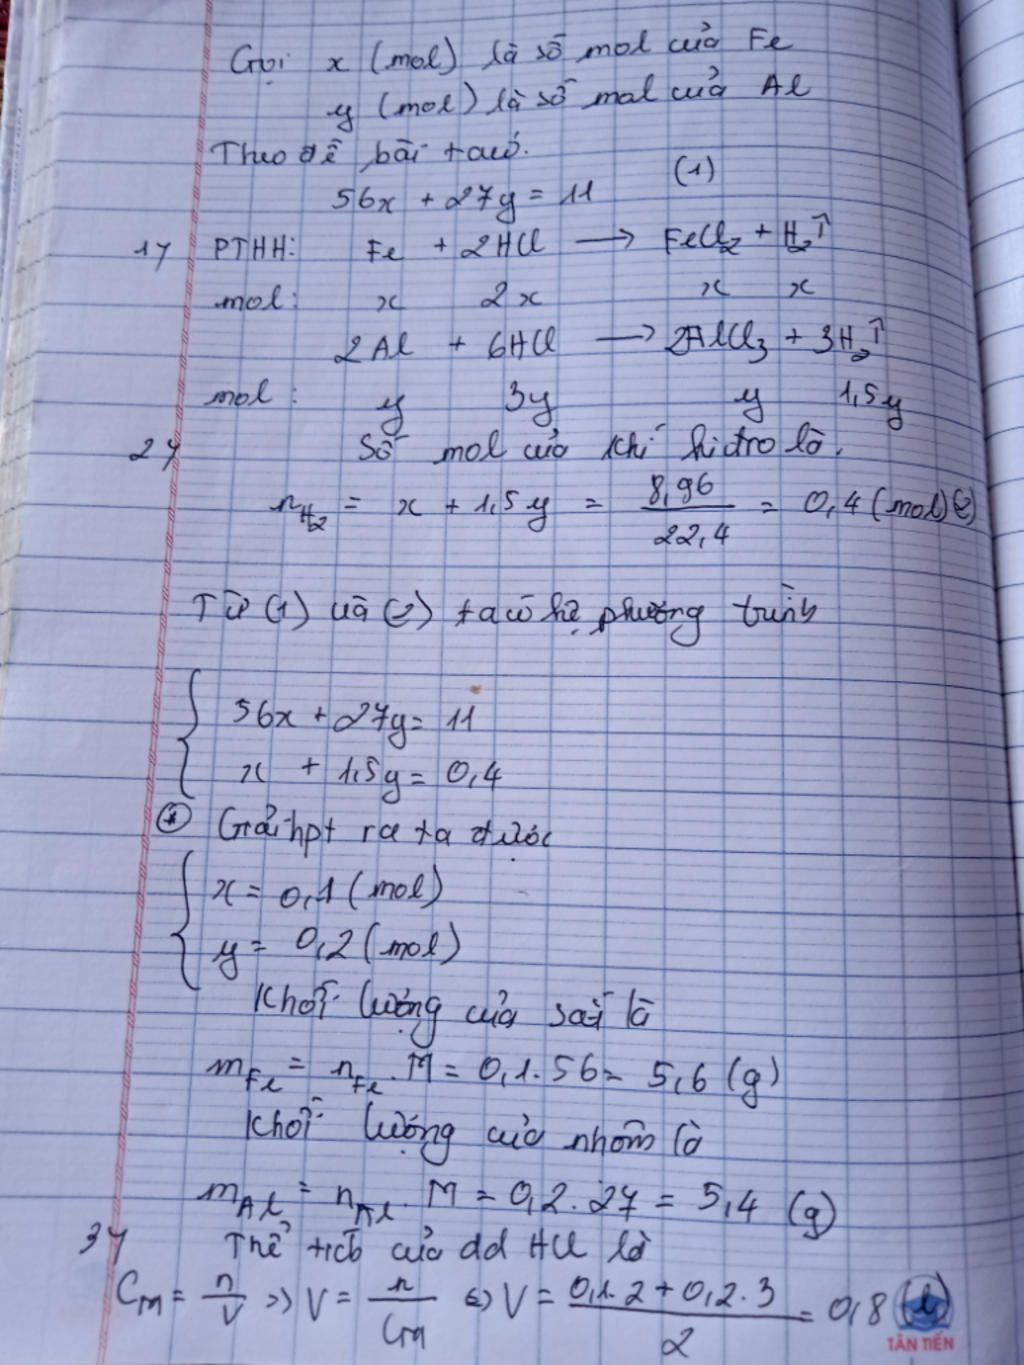 Gọi x (mol) là số mol của Fe
y (mol) là số mol của Al
Theo đề bài ta có.
56x + 27y = 11 (1)
1/ PTHH: Fe + 2HCl → FeCl₂ + H₂↑
mol: x 2x x x
2Al + 6HCl → 2AlCl₃ + 3H₂↑
mol: y 3y y 1,5y
2/ Số mol của khí hiđro là.
n_H₂ = x + 1,5y = 8,96/22,4 = 0,4 (mol) (2)
Từ (1) và (2) ta có hệ phương trình
{ 56x + 27y = 11
x + 1,5y = 0,4
* Giải hpt ra ta được
{ x = 0,1 (mol)
y = 0,2 (mol)
Khối lượng của sắt là
m_Fe = n_Fe . M = 0,1 . 56 = 5,6 (g)
Khối lượng của nhôm là
m_Al = n_Al . M = 0,2 . 27 = 5,4 (g)
3/ Thể tích của dd HCl là
C_M = n/V => V = n/C_M <=> V = (0,1 . 2 + 0,2 . 3)/2 = 0,8 (l)
TÂN TIẾN